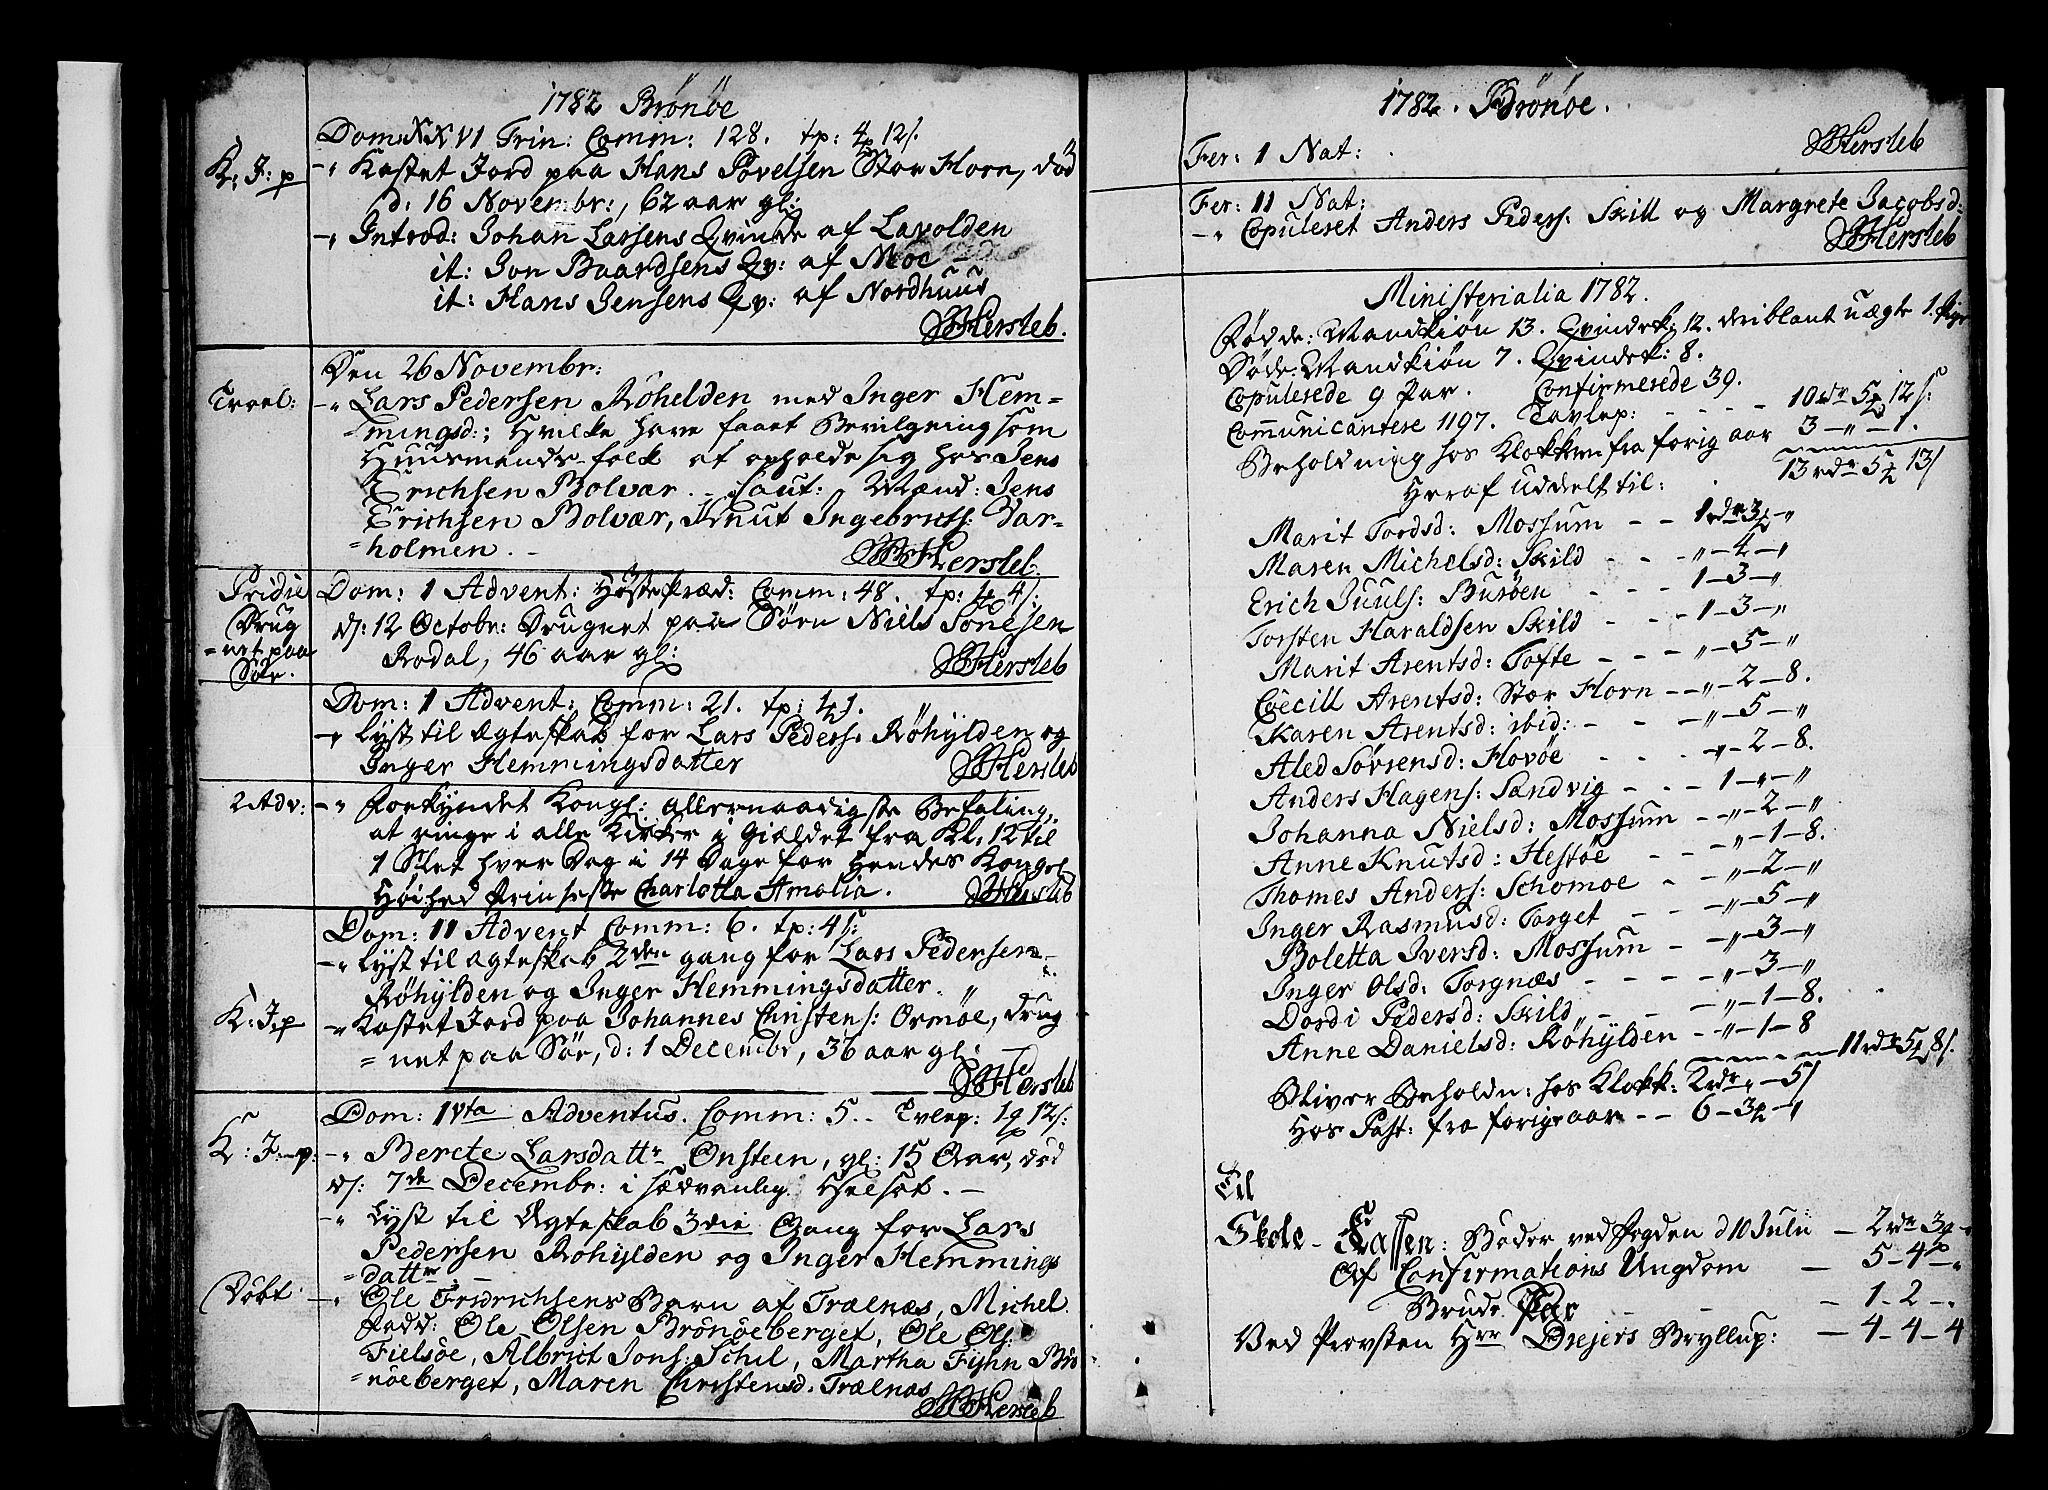 1782 Brönöe
Dom: XXVI Trin: Comm: 128. tp: 4 12 s.
K: J: p
-" Kastet Jord paa Hans Povelsen Stor Horn, död
d: 16 Novembr:, 62 aar gl:
-" Introd: Johan Larsens Qvinde af Lavolden
it: Jon Baardsens Qv: af Moe
it: Hans Jensens Qv: af Nordhuus
Hersleb.
Den 26 Novembr:
Trol:
-" Lars Pedersen Röhelden med Inger Hem-
=mingsd:; hvilke have faaet Bevilgning som
Huusmands-folk at opholde sig hos Jens
Erichsen Bolvær. - Caut: Mænd: Jens
Erichsen Bolvær, Knut Ingebrictss: Var-
=holmen. -
Hersleb
Pridie
Drug
=net paa
Söe.
Dom: 1 Advent: Höstepræd: Comm: 48. tp: 4 s:
d: 12 Octobr: Drugnet paa Söen Niels Jonesen
Rodal, 46 aar gl:
Hersleb
Dom: 1 Advent: Comm: 21. tp:
-" Lyst til Ægteskab for Lars Peders: Röhylden og
Inger Hemmingsdatter
Hersleb
2 Adv:
-" Forkyndet Kongl: allernaadigste Befaling,
at ringe i alle Kirker i Gieldet fra Kl: 12 til
1 Slet hver Dag i 14 Dage for Hendes Kongel
Höihed Prinsesse Charlotta Amalia.
Hersleb
Dom: 11 Advent Comm: 6. tp: 4 s:
-" Lyst til Ægteskab 2den gang for Lars Pedersen
Röhylden og Inger Hemmingsdatter.
K: J: p
-" Kastet Jord paa Johannes Christens: Ormöe, drug
=net paa Söe, d: 1 Decembr, 36 aar gl:
Hersleb
Dom: IVta Adventus. Comm: 5. - Tvlep: 12 s:
K: J: p:
-" Berete Larsdattr Onsteen, gl: 15 Aar, död
d: 7de Decembr: i sædvanlig Helsot. -
-" Lyst til Ægteskab 3die Gang for Lars
Pedersen Röhylden og Inger Hemmings
=dattr. -
Döbt
-" Ole Fridrichsens Barn af Trælnæs, Michel
Fadd: Ole Olsen Brönöeberget, Ole Ols:
Fielsöe, Albrict Jons: Schil, Martha Fyhn Brö
=nöeberget, Maren Christensd: Trælnæs
Hersleb
1782. Brönöe.
Fer: 1 Nat:
Hersleb
Fer: 11 Nat:
-" Copuleret Anders Peders: Skill og Margrete Jacobsd:
Hersleb
Ministerialia 1782.
Födde: Mandkiön 13. Qvindek: 12. deriblant uægte 1. Pige
Döde: Mandkiön 7. Qvindek: 8.
Copulerede 9 Par. Confirmerede 39.
Communicantere 1197. Tavlep: - - - - 10 rdr 5 12 s:
Beholdning hos Klokkeren fra forig aar 3 - " - 1.
13 rdr 5 13 s
Heraf uddelt til:
Marit Tordsd: Mossum - - 1 rdr 3 - "
Maren Michelsd: Skild - - - " - 4 - "
Erich Juuls: Buröen - - - 1 - 3 - "
Torsten Haraldsen Skild - - - 1 - 3 - "
Marit Arentsd: Tofte - - - " - 5 - "
Coecill Arentsd: Stor Horn - - " - 2 - 8.
Karen Arentsd: ibid: - - - " - 5 - "
Aled Sörrensd: Hovöe - - - " - 2 - 8.
Anders Hagens: Sandvig - - - 1 - " - "
Johanna Nielsd: Mossum - - " - 2 - "
Anne Knutsd: Hestöe - - - " - 1 - 8.
Thomes Anders: Schomoe - - - " - 2 - "
Inger Rasmusd: Torget - - - " - 5 - "
Boletta Iversd: Mossum - - " - 3 - "
Inger Olsd: Torgnæs - - - - " - 3 - "
Dordi Pedersd: Skild - - - " - 1 - 8.
Anne Danielsd: Röhylden - - " - 1 - 8
11 rdr 5 8 s.
Bliver Beholdn: hos Klokk: 2 rdr " - 5 s
Hos Past: fra forige aar - - 6 - 3 - "
Til
Skole-Cassen: Böder ved Fogden d 10 Julii - 2 rdr 3
Af Confirmations Ungdom - 5 - 4 - "
Brude Par - - - 1 - 2 - "
Ved Provsten Hrr Dreiers Bryllup: - 4 - 4 - 4